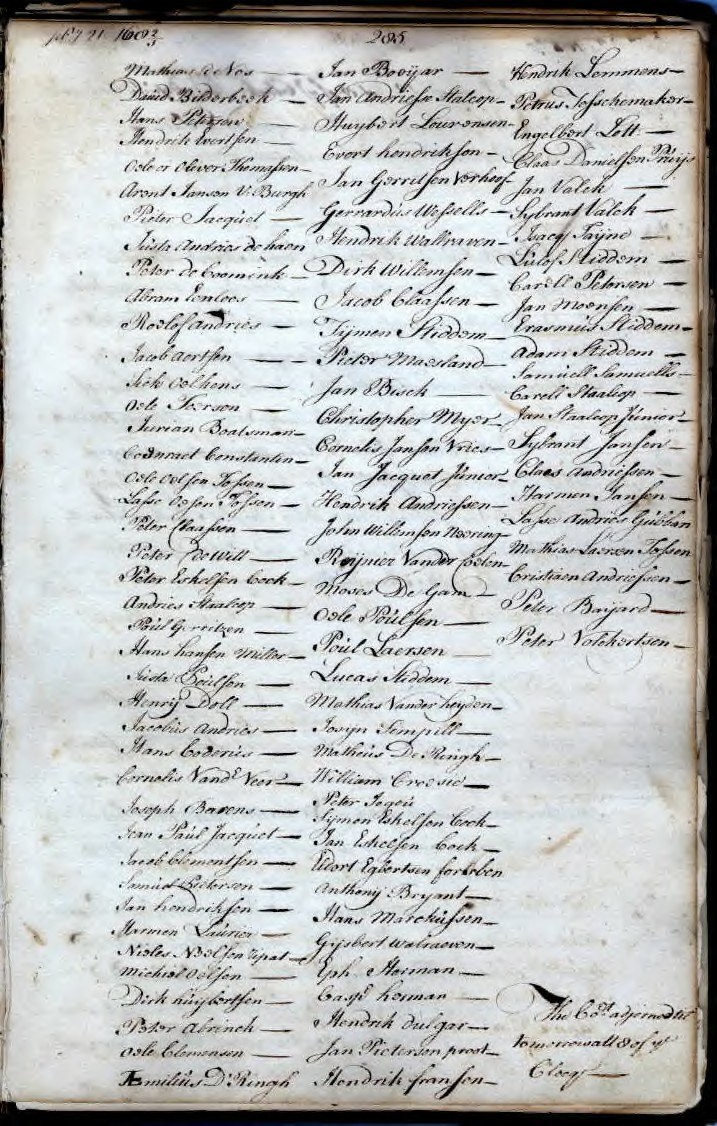 feb 21 1682/3
285
Mathias de Vos
David Bilderbeek
Hans Peterson
Hendrik Evertsen
Oele or Olever Thomassen
Arent Jansen V: Burgh
Pieter Jacquet
Justa Andries de haen
Peter de Coominck
Abram Eenloos
Roelof Andries
Jacob Aertsen
Sick Oelkens
Oele Toersen
Jurian Boatsman
Coenraet Constantin
Oele Oelsen Tossen
Lasse Oelsen Tossen
Peter Claassen
Peter de Witt
Peter Eskelsen Cock
Andries Staalcop
Poul Gerritzen
Hans hansen Miller
Justa Poulsen
Henry Doll
Jacobus Andries
Hans Coderius
Cornelis Vand Veer
Joseph Barens
Jean Paul Jacquet
Jacob Clementsen
Samuel Pietersen
Jan hendriksen
Harmen Laurier
Nieles Neelsen
Michiel Oelsen
Dirk huybertsen
Peter Abrinck
Oele Clemensen
Emilius D'Ringh
Jan Booijar
Jan Andriesse Stalcop
Huybert Lourensen
Evert hendriksen
Jan Gerritsen Verhoof
Gerrardus Wessells
Hendrik Wallraven
Dirk Willemsen
Jacob Claassen
Tijmen Stiddem
Pieter Maesland
Jan Bisck
Christopher Myer
Cornelis Jansen Vries
Jan Jacquet Junior
Hendrik Andriessen
John Willemsen Neering
Reynier Vander Coelen
Moses De Gam
Oele Poulsen
Poul Laersen
Lucas Stiddem
Mathias Vander heyden
Josyn Sempill
Matheus De Ringh
William Croesie
Peter Jegou
Symon Eskelsen Cock
Jan Eskelsen Cock
Edort Egbertsen
Anthony Bryant
Hans Marckussen
Gysbert Walraeven
Eph Herman
Casp herman
Hendrik Dulgar
Jan Pietersen proot
Hendrik fransen
Hendrik Lemmens
Petrus Tesschemaker
Engelbert Lott
Claas Danielsen Pruys
Jan Valck
Sybrant Valck
Isacq Tayne
Lulof Stiddem
Carell Petersen
Jan Moensen
Erasmus Stiddem
Adam Stiddem
Samuell Samuells
Carell Staalcop
Jan Staalcop Junior
Sybrant Jansen
Claes Andriessen
Harmen Jansen
Lasse Andries Gubban
Mathias Laersen Tossen
Cristiaen Andriessen
Peter Baijard
Peter Volckertsen
The Cort adjorned til
tomorrow att 8 of ye
Clocq